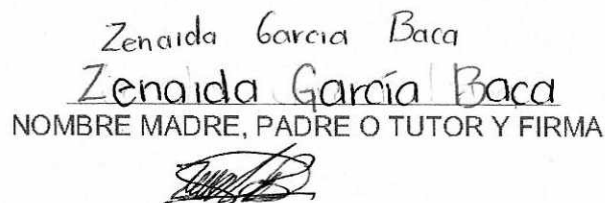 Zenaida Garcia Baca
Zenaida García Baca
NOMBRE MADRE, PADRE O TUTOR Y FIRMA